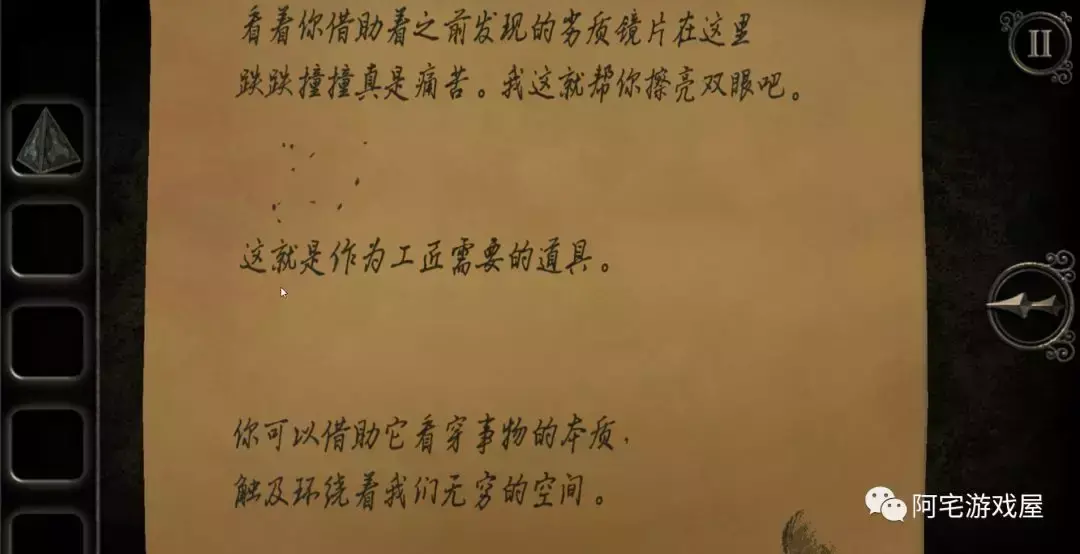 看着你借助着之前发现的劣质镜片在这里
跌跌撞撞真是痛苦。我这就帮你擦亮双眼吧。
这就是作为工匠需要的道具。
你可以借助它看穿事物的本质，
触及环绕着我们无穷的空间。
阿宅游戏屋